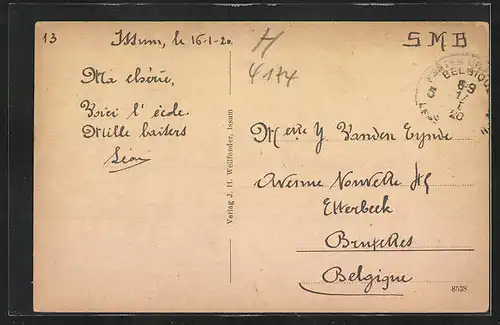 13
Issum, le 16-1-20
H
4174
S M B
BELGIQUE
5
8-9
17
I
20
Ma chérie,
Voici l'école.
Mille baisers
Léon
Verlag J. H. Wellfonder, Issum
Melle Y. Vanden Eynde
Avenue Nouvelle
Etterbeek
Bruxelles
Belgique
8538